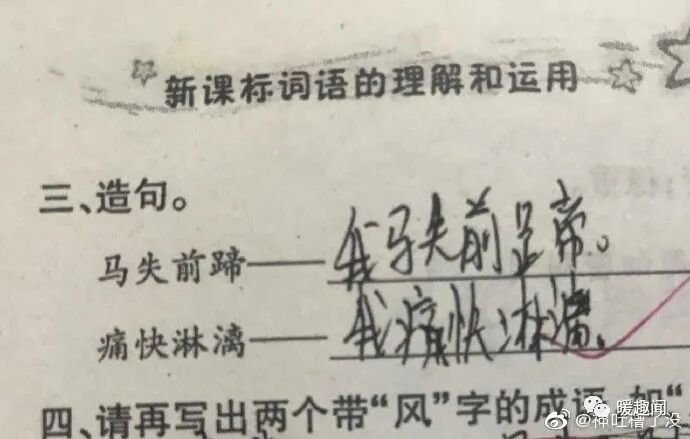 新课标词语的理解和运用
三、造句。
马失前蹄——我马失前蹄。
痛快淋漓——我痛快淋漓。
四、请再写出两个带“风”字的成语,如“
暖趣闻
@神吐槽了没